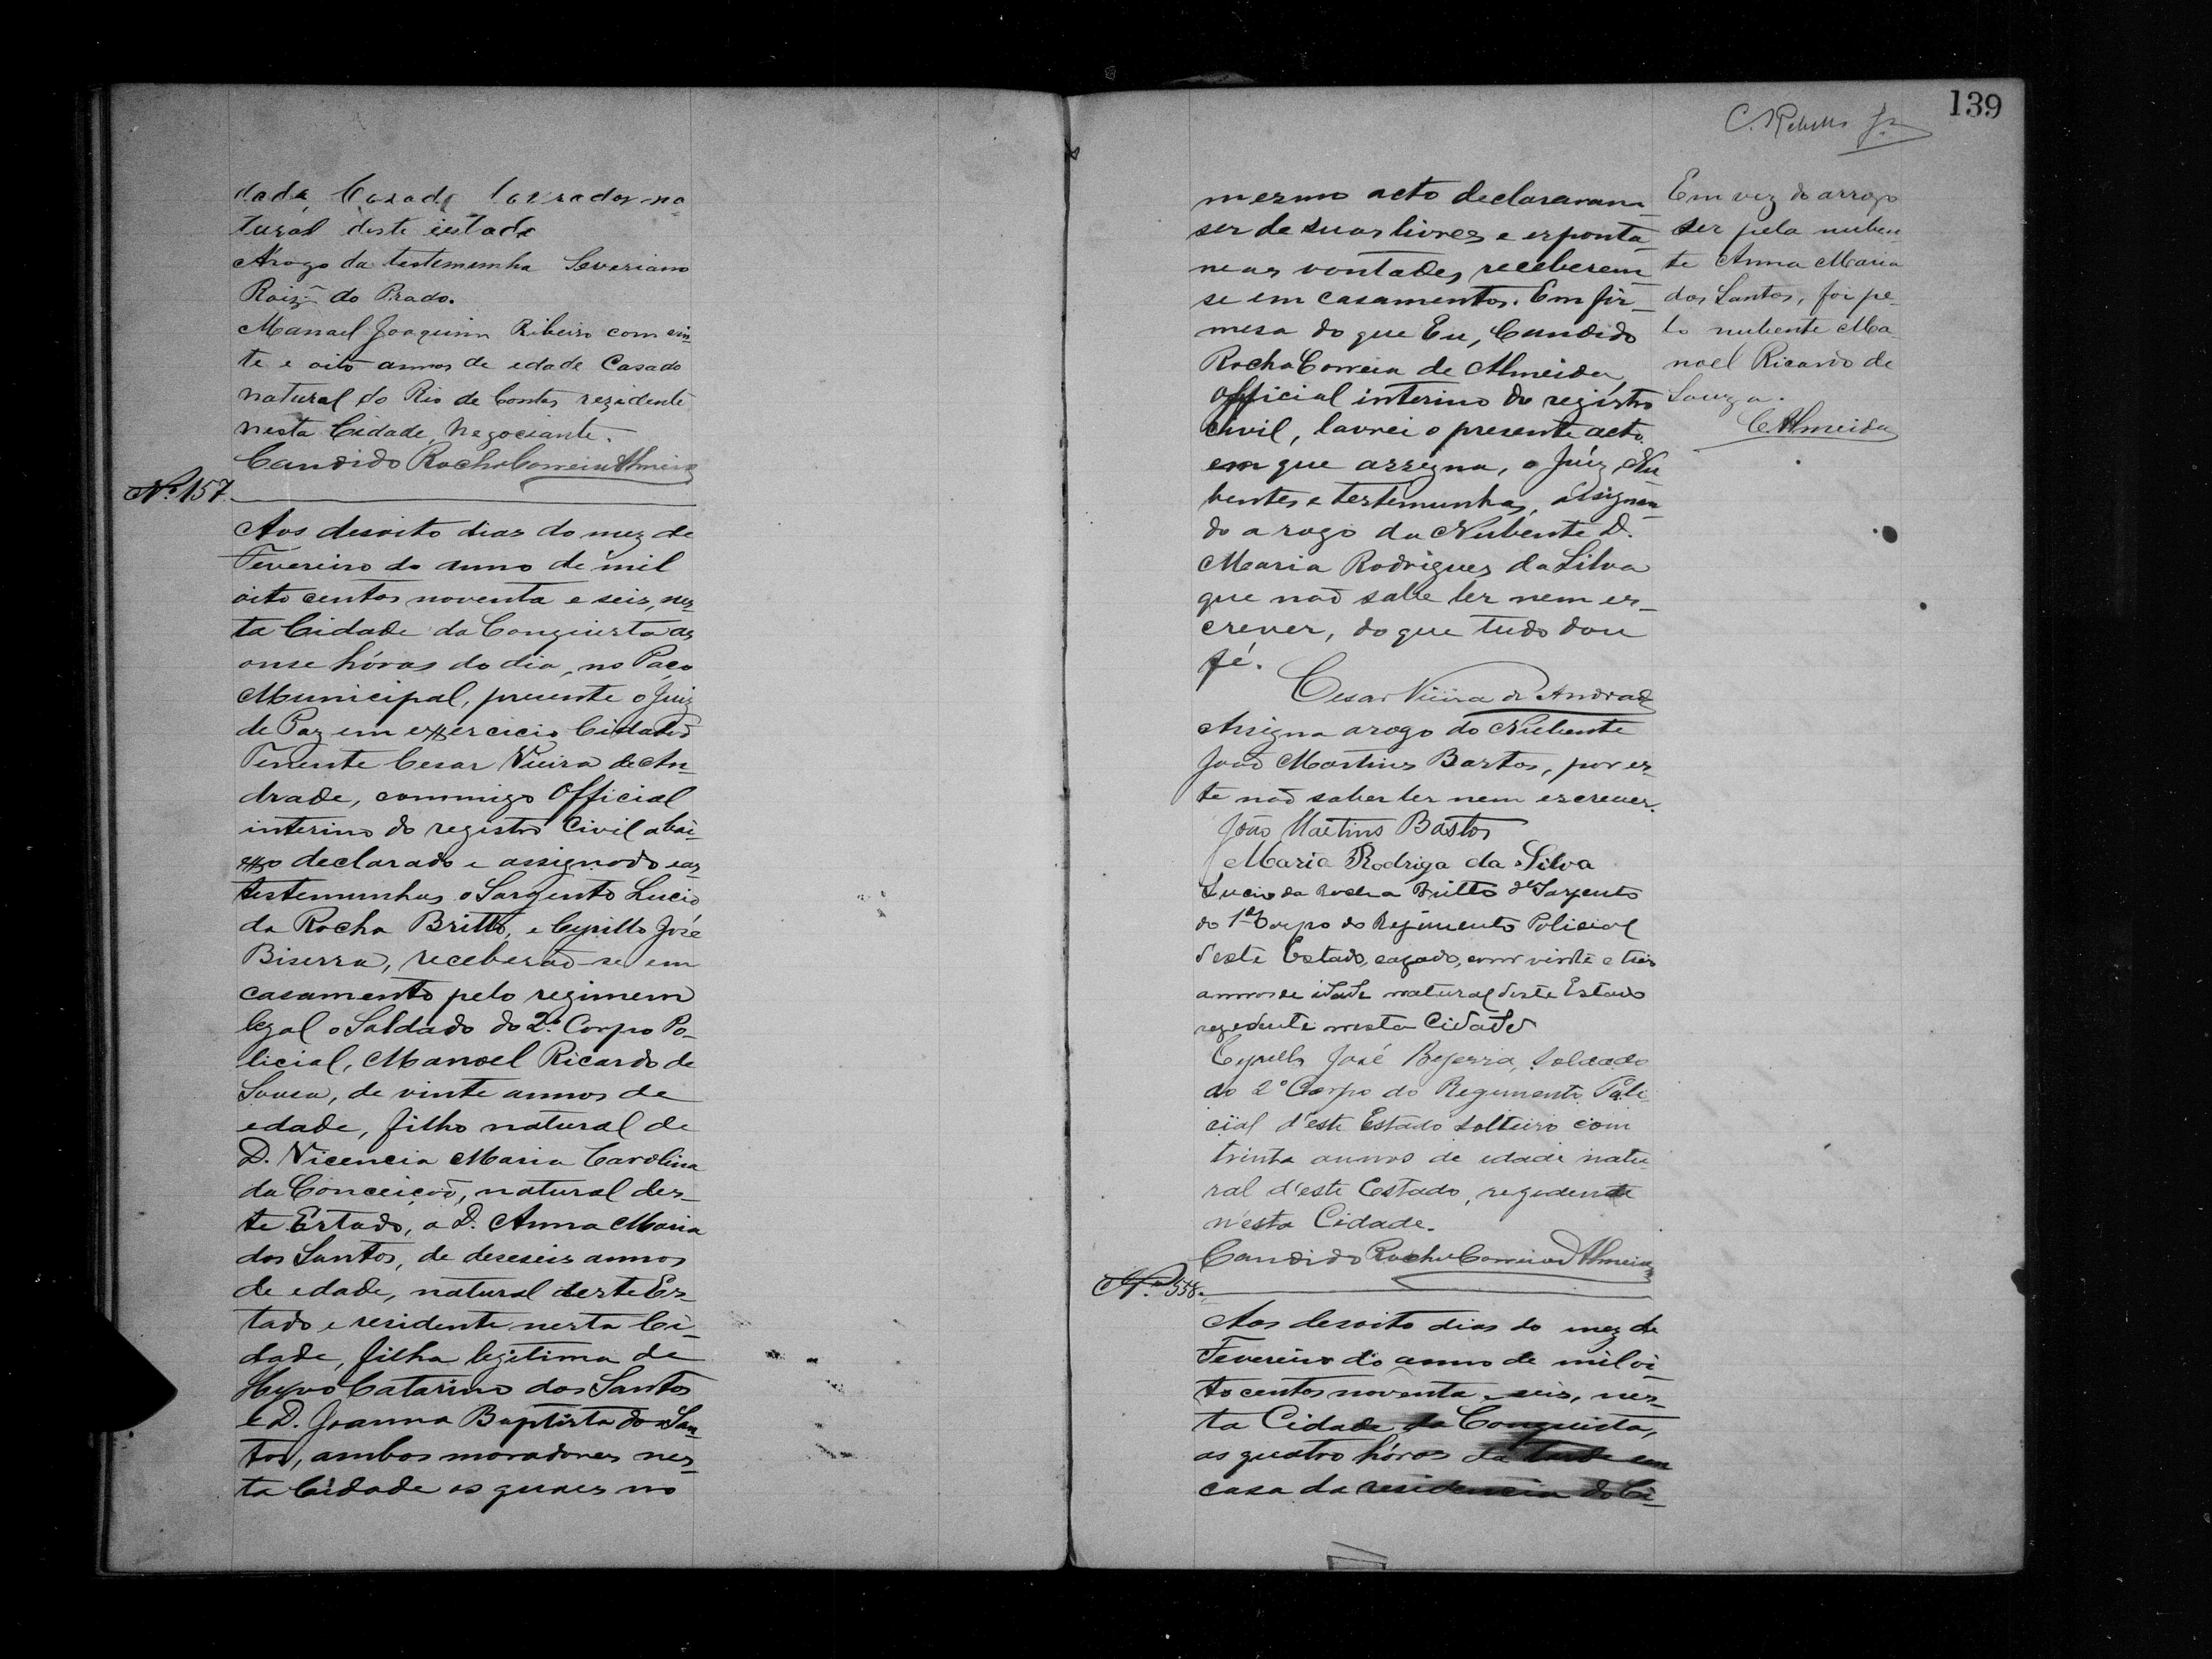 dade, Casado lavrador na
tural deste estado
Arogo da testemumha Severiano
Roiz do Prado.
Manoel Joaquim Ribeiro com vin
te e oito annos de edade Casado
natural do Rio de Contas rezidente
nesta Cidade, Negociante.
Candido Rocha Correia Almeida
Nº 157.
Aos desoito dias do mez de
Fevereiro do anno de mil
oito centos noventa e seis, nes-
ta Cidade da Conquista as
onse hóras do dia, no Paço
Municipal, presente o Juiz
de Paz em exxercicio Cidadão
Tenente Cesar Vieira de An-
drade, commigo Official
interino do registro Civil abai-
xxo declarado e assignado e as
testemunhas o Sargento Lucio
da Rocha Britto, e Cyrillo José
Biserra, receberão-se em
casamento pelo regimem
legal o Soldado do 2º Corpo Po-
licial, Manoel Ricardo de
Sousa, de vinte annos de
edade, filho natural de
D. Vicencia Maria Carolina
da Conceição, natural des-
te Estado, a D. Anna Maria
dos Santos, de deseseis annos
de edade, natural deste Es-
tado e residente nesta Ci-
dade, filha legitima de
Catarino dos Santos
e D. Joanna Baptista dos San
tos, ambos moradores nes-
ta Cidade os quaes no
139
C. Rebello Jr
mesmo acto declararam
ser de suas livres e esponta
neas vontades, receberem-
se em casamentos. Em fir-
mesa do que Eu, Candido
Rocha Correia de Almeida,
official interino do registro
Civil, lavrei o presente acto
em que assigna, o Juiz, Nu
bentes e testemunhas, assignan
do a rogo da Nubente D.
Maria Rodrigues da Silva
que não sabe ler nem es-
crever, do que tudo dou
fé.
Cesar Vieira de Andrade
Assigna arogo do Nubente
João Martins Bastos, por es-
te não saber ler nem escrever.
João Martins Bastos
Maria Rodriga da Silva
Lucio da Rocha Britto Sargento
do 1º Corpo do Regimento Policial
d'este Estado, cazado, com vinte e tres
annos de idade natural deste Estado
rezedente nesta Cidade
Cyrillo José Bezerra, Soldado
do 2º Corpo do Regimento Poli-
cial d'este Estado solteiro com
trinta annos de edade natu-
ral d'este Estado, rezedente
n'esta Cidade.
Candido Rocha Correia d'Almeida
Nº 158.
Aos desoito dias do mez de
Fevereiro do anno de mil oi-
to centos noventa e seis, nes-
ta Cidade da Conquista,
as quatro hóras da tarde em
casa da residencia do Ci-
Em vez do arrogo
ser pela nuben-
te Anna Maria
dos Santos, foi pe-
lo nubente Ma-
noel Ricardo de
Souza.
C. Almeida